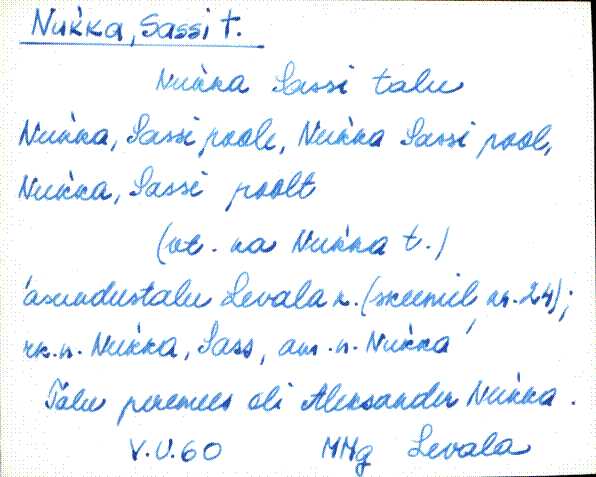 Nukka, Sassi t.
Nuk̀ka Sassi talu
Nuk̀ka, Sassi poole, Nuk̀ka Sassi pool,
Nuk̀ka, Sassi poolt
(vt. ka Nuk̀ka t.)
'asundustalu Levala k. (skeemil nr. 24);
rk.n. Nuk̀ka, Sass, am.n. Nuk̀ka
Talu peremees oli Aleksander Nuk̀ka.
V.U.60 MMg Levala